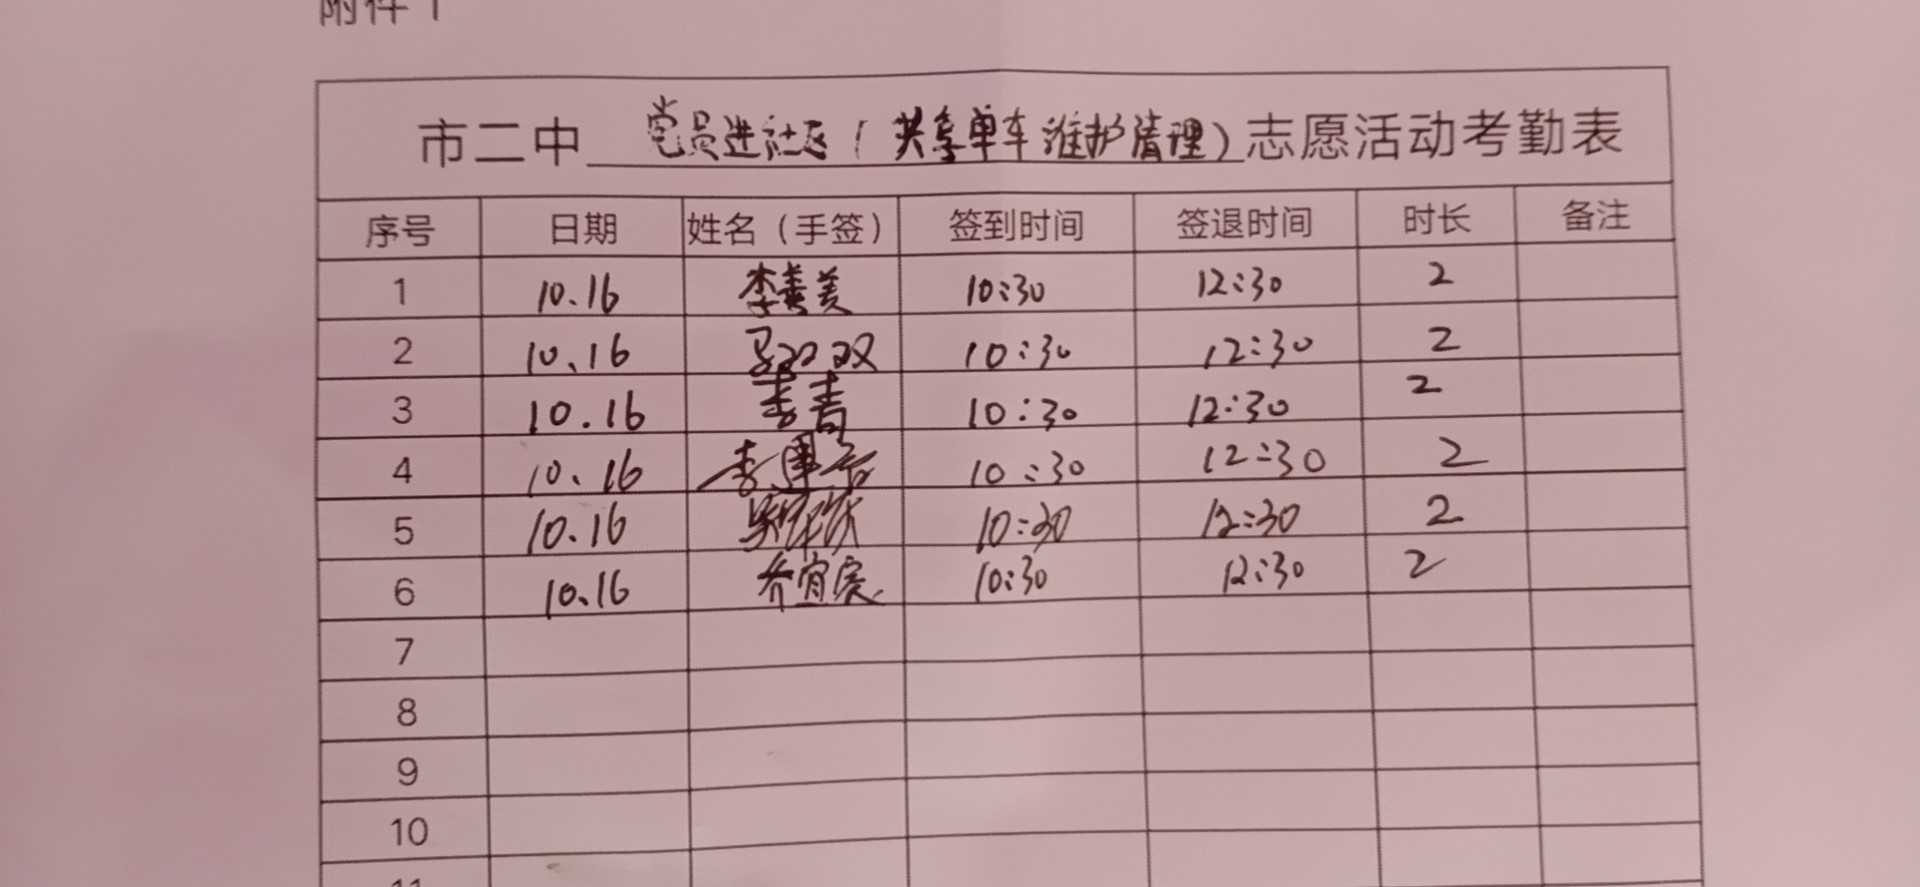 附件1
市二中 党员进社区(共享单车维护清理)志愿活动考勤表
序号 日期 姓名(手签) 签到时间 签退时间 时长 备注
1 10.16 李善美 10:30 12:30 2
2 10.16 马双双 10:30 12:30 2
3 10.16 李青 10:30 12:30 2
4 10.16 10:30 12:30 2
5 10.16 10:30 12:30 2
6 10.16 乔宜宾 10:30 12:30 2
7
8
9
10
11